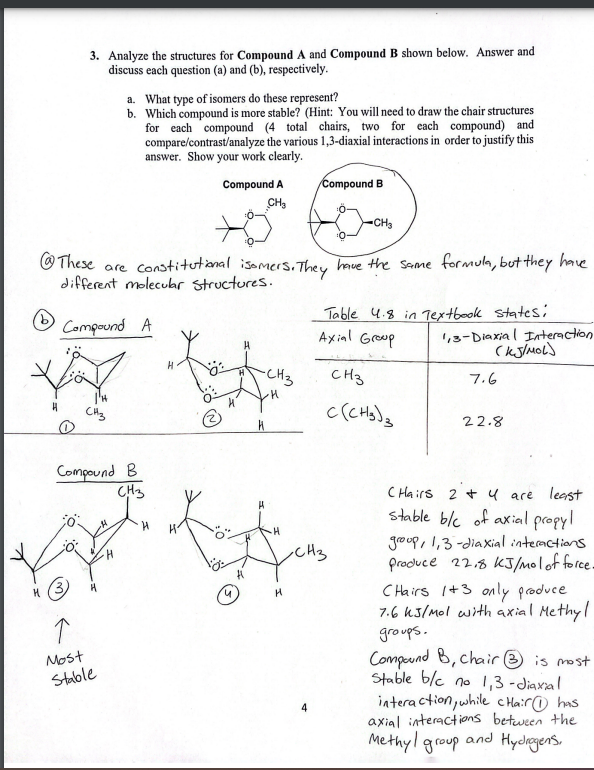 3. Analyze the structures for Compound A and Compound B shown below. Answer and
discuss each question (a) and (b), respectively.
a. What type of isomers do these represent?
b. Which compound is more stable? (Hint: You will need to draw the chair structures
for each compound (4 total chairs, two for each compound) and
compare/contrast/analyze the various 1,3-diaxial interactions in order to justify this
answer. Show your work clearly.
Compound A
Compound B
CH3
:Ö
:O
:Ö
:O
CH3
ⓐ These are constitutional isomers. They have the same formula, but they have
different molecular structures.
ⓑ Compound A
Table 4.8 in Textbook states:
Axial Group
1,3-Diaxial Interaction
(kJ/mol)
CH3
7.6
C(CH3)3
22.8
O
O
H
H
CH3
①
H
H
O
H
CH3
O
H
H
H
②
Compound B
CH3
O
H
H
O
H
H
H
③
↑
Most
Stable
H
H
O
H
H
CH3
O
H
H
④
CHairs 2 + 4 are least
stable b/c of axial propyl
group, 1,3-diaxial interactions
produce 22.8 KJ/mol of force.
CHairs 1+3 only produce
7.6 KJ/mol with axial Methyl
groups.
Compound B, chair ③ is most
stable b/c no 1,3-diaxial
interaction, while cHair ① has
axial interactions between the
Methyl group and Hydrogens.
4